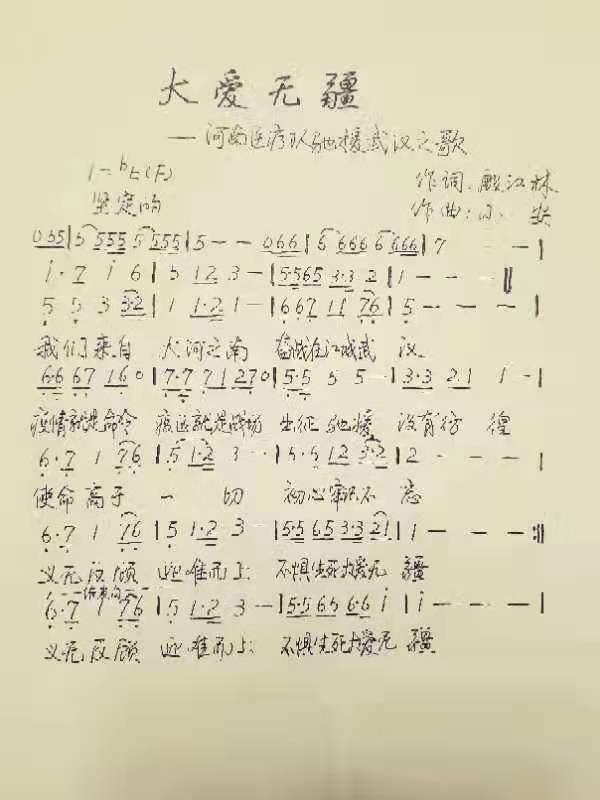 大爱无疆
——河南医疗队驰援武汉之歌
1=♭E(F)
坚定的
作词:殷江林
作曲:小 安
055|5 555 5 555|5 - - 066|6 666 6 666|7 - -|
i·7 i 6|5 12 3 -|5·565 3·3 2|1 - - -‖
5 5 3 3·2|1 1·2 1 -|667 11 76|5 - - -|
我们来自 大河之南 奋战在江城武 汉
6·6 67 16 0|7·7 71 27 0|5·5 5 5 -|3·3 21 1 -|
疫情就是命令 疫区就是战场 出征驰援 没有彷徨
6·7 1 76|5 1·2 3 -|5·5 12 3·2|2 - - -|
使命高于 一 切 初心牢记不 忘
6·7 1 76|5 1·2 3 -|5·5 65 3·3 21|1 - - -:‖
义无反顾 迎难而上 不惧生死大爱无 疆
结束句
6·7 1 76|5 1·2 3 -|5·5 65 6·6 i|i - - -|
义无反顾 迎难而上 不惧生死大爱无 疆